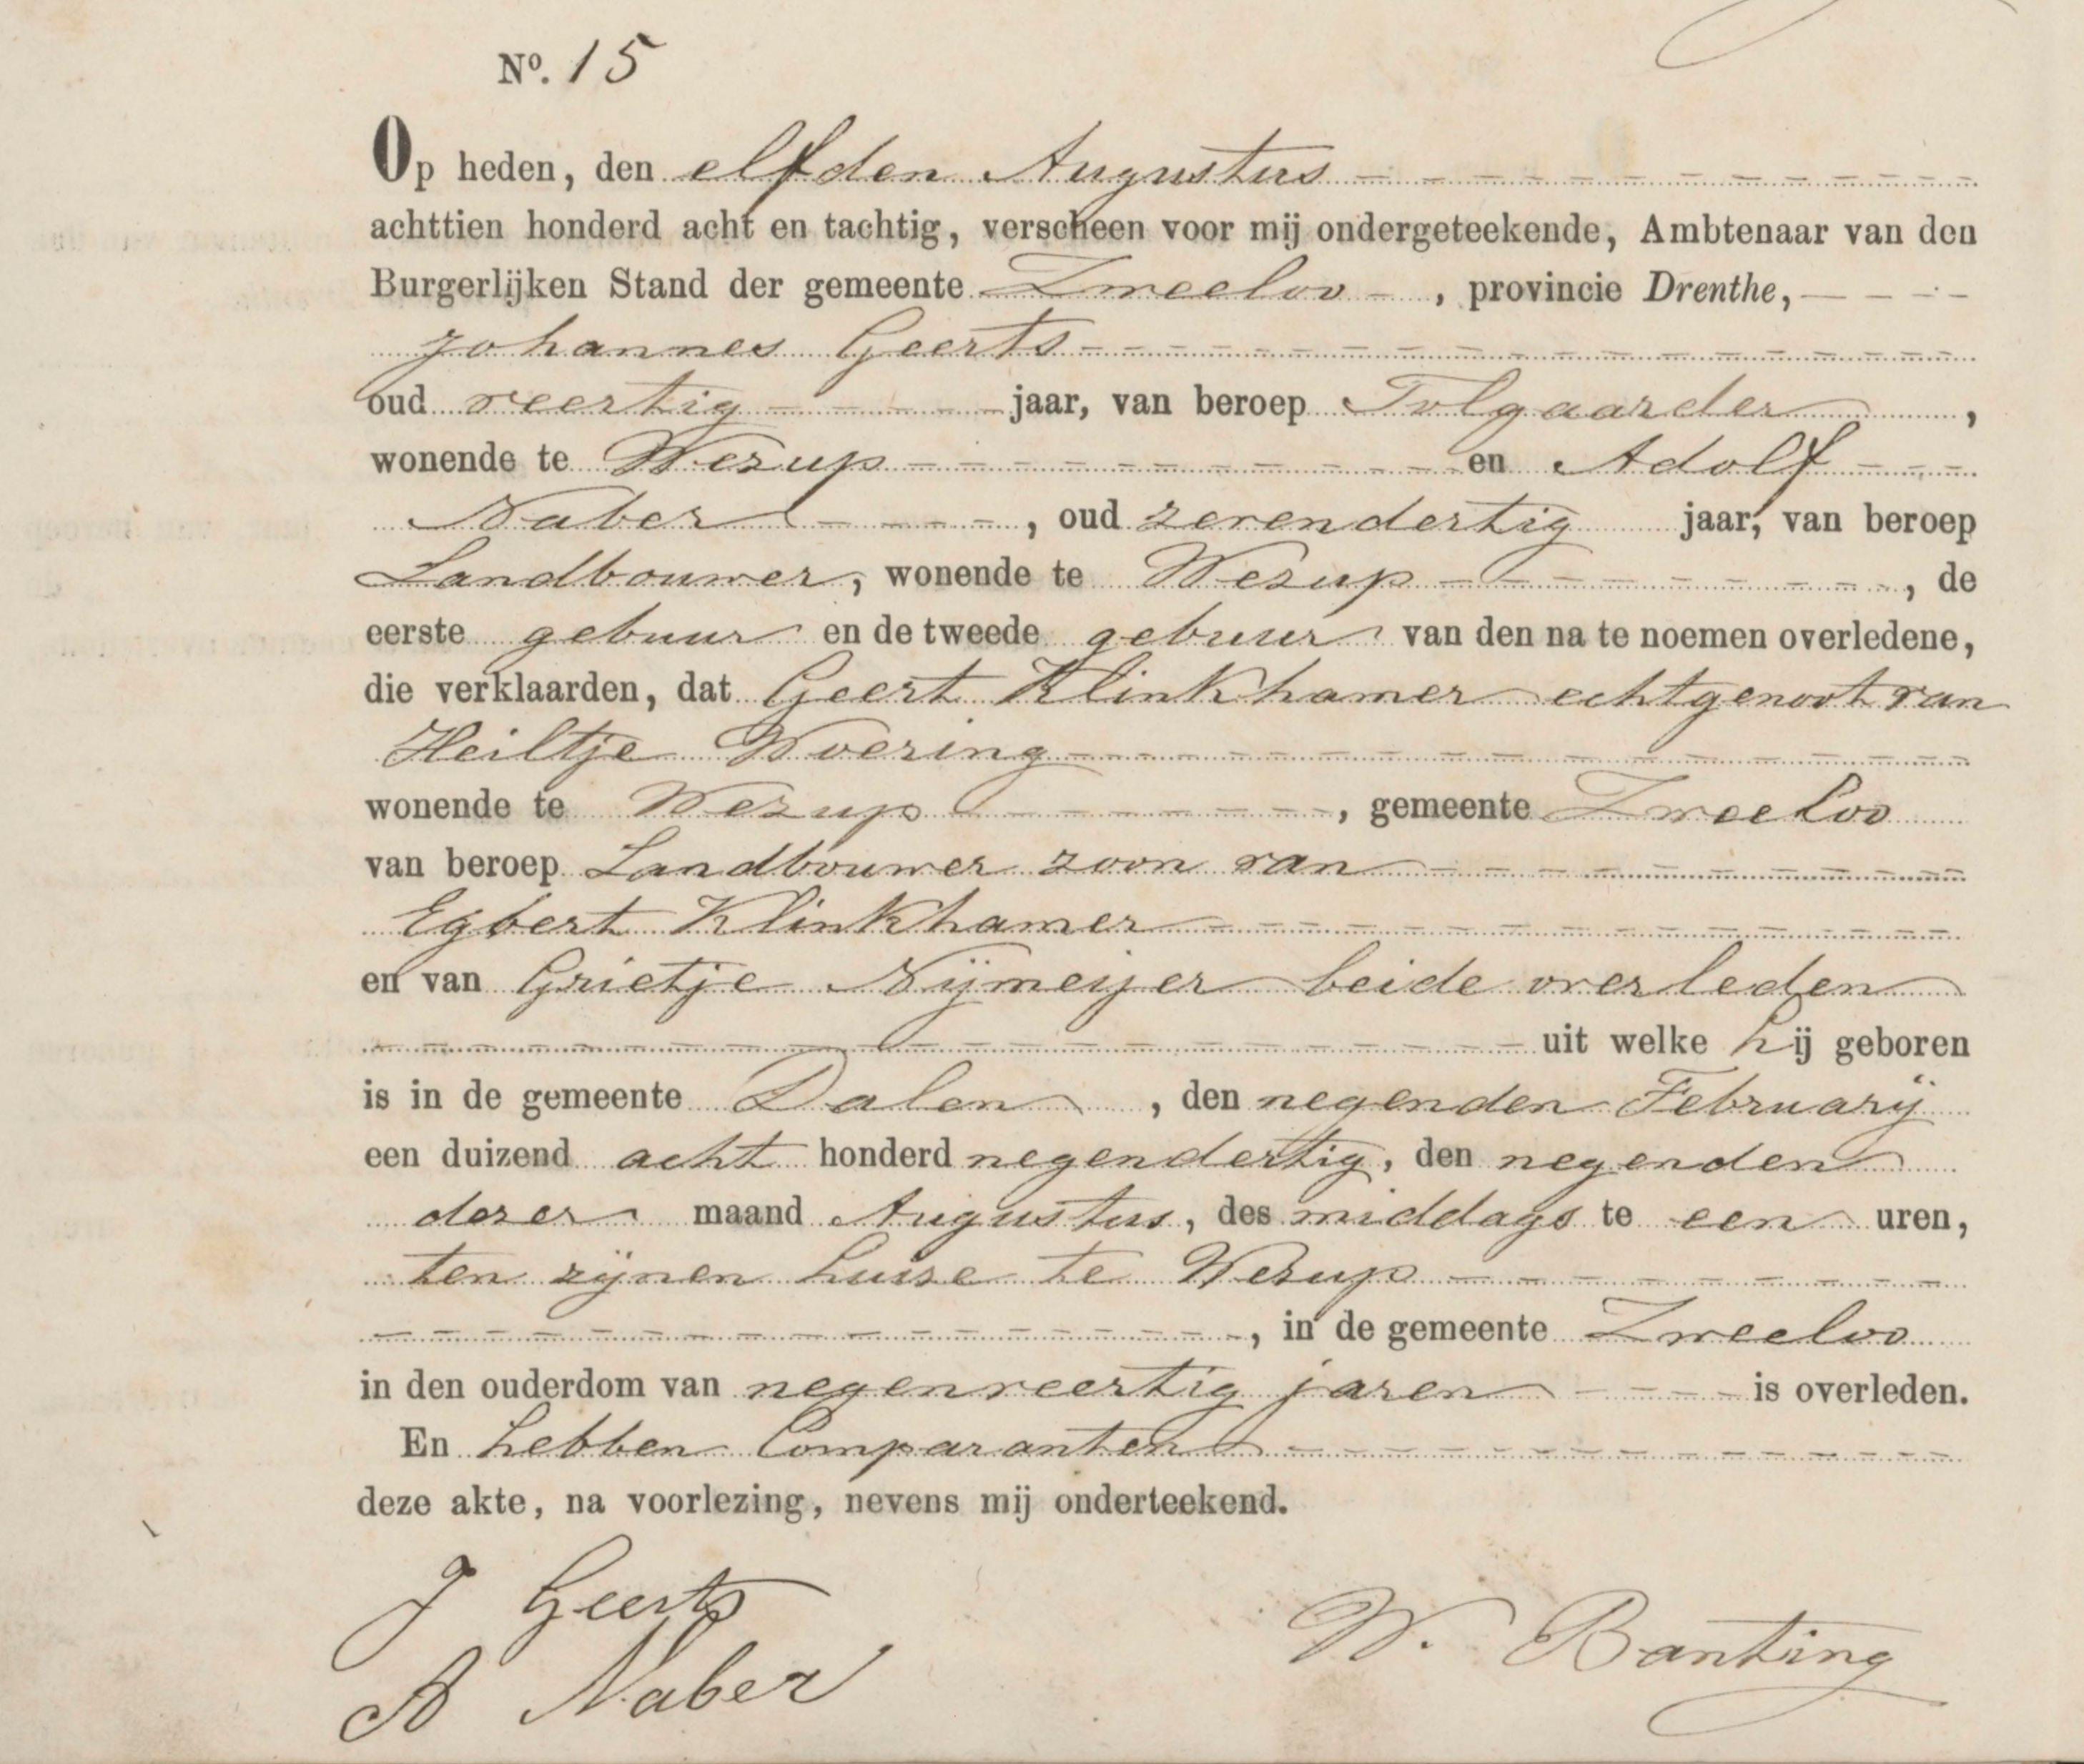 No. 15
Op heden, den elfden Augustus
achttien honderd acht en tachtig, verscheen voor mij ondergeteekende, Ambtenaar van den
Burgerlijken Stand der gemeente Zweeloo, provincie Drenthe,
Johannes Geerts
oud veertig jaar, van beroep Tolgaarder,
wonende te Wezup en Adolf
Naber, oud zevendertig jaar, van beroep
Landbouwer, wonende te Wezup, de
eerste gebuur en de tweede gebuur van den na te noemen overledene,
die verklaarden, dat Geert Klinkhamer echtgenoot van
Heiltje Woering
wonende te Wezup, gemeente Zweeloo
van beroep Landbouwer zoon van
Egbert Klinkhamer
en van Grietje Nijmeijer beide overleden
uit welke hij geboren
is in de gemeente Dalen, den negenden Februarij
een duizend acht honderd negendertig, den negenden
dezer maand Augustus, des middags te een uren,
ten zijnen huize te Wezup
, in de gemeente Zweeloo
in den ouderdom van negenveertig jaren is overleden.
En hebben Comparanten
deze akte, na voorlezing, nevens mij onderteekend.
J Geerts
A Naber
W. Banting